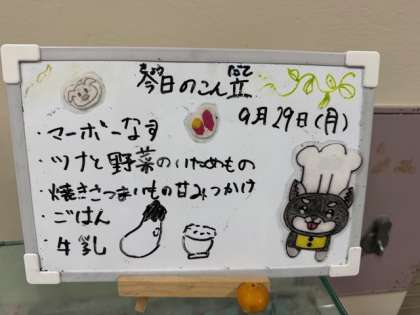 今日のこん立
9月29日(月)
・マーボーなす
・ツナと野菜のいためもの
・焼きさつまいもの甘みつかけ
・ごはん
・牛乳